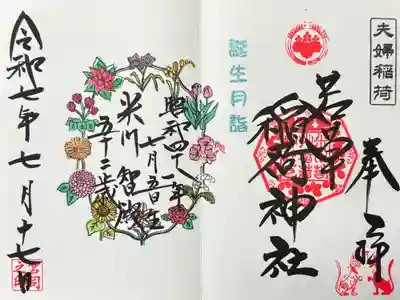 夫婦稲荷
奉拝
稲荷神社
誕生月詣
昭和四十八年
七月五日生
米川 智
五十二歳
令和七年七月十七日